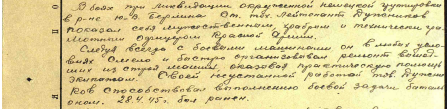 В боях при ликвидации окруженной немецкой группировки
в р-не Ю.В. Берлина. Ст. тех. Лейтенант Дупаников
показал себя мужественным, храбрым и технически гра
мотным Офицером Красной Армии.
Следуя всегда с боевыми машинами он в любых усло
виях смело и быстро организовывал ремонт вышед
ших из строя машин, оказывая практическую помощь
Экипажам. Своей неустанной работой тов. Дупани
ков способствовал выполнению боевой задачи батальо
оном. 28.4.45г. был ранен.